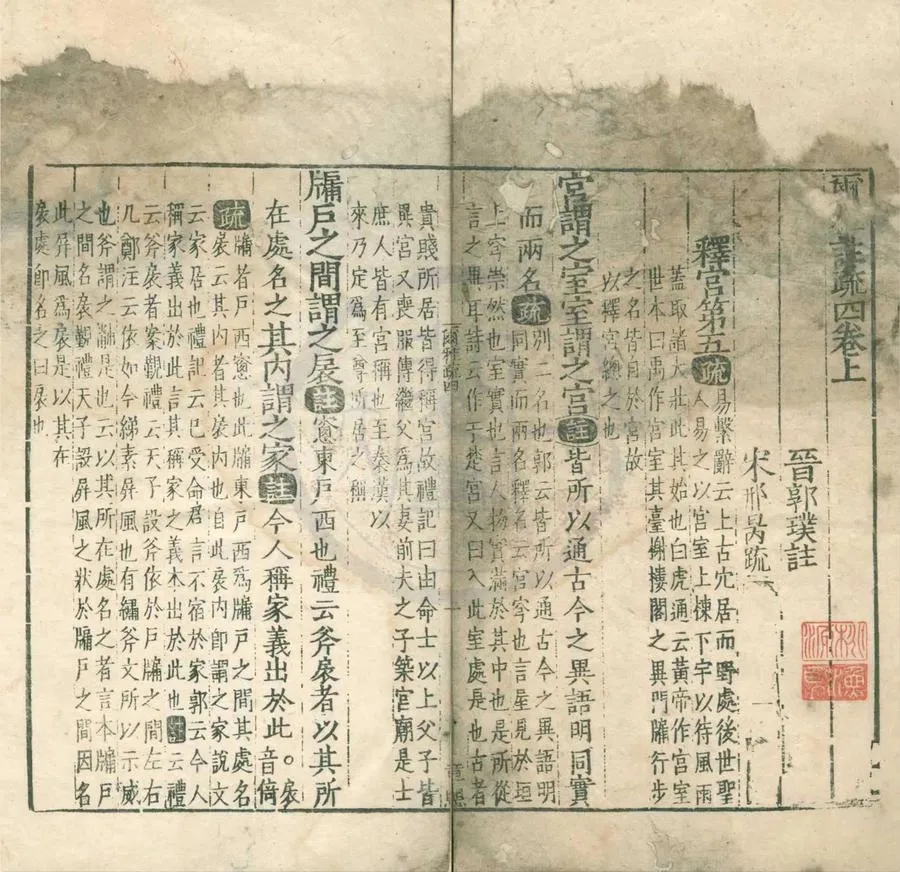 爾雅註疏四卷上
晉郭璞註
宋邢昺疏
釋宮第五疏易繫辭云上古穴居而野處後世聖
人易之以宮室上棟下宇以待風雨
蓋取諸大壯此其始也白虎通云黃帝作宮室
世本曰禹作宮室其臺榭樓閣之異門牖行步
之名皆自於宮故
以釋宮總之也
宮謂之室室謂之宮註皆所以通古今之異語明同實
而兩名疏別二名也郭云皆所以通古今之異語明
同實而兩名釋名云宮穹也言屋見於垣
上穹崇然也室實也言人物實滿於其中也是所從
言之異耳詩云作于楚宮又曰入此室處是也古者
貴賤所居皆得稱宮故禮記曰由命士以上父子皆
異宮又喪服傳繼父為其妻前夫之子築宮廟是士
庶人皆有宮稱也至秦漢以
來乃定為至尊所居之稱
牖戶之間謂之扆註窻東戶西也禮云斧扆者以其所
在處名之其內謂之家註今人稱家義出於此。扆音倚
疏牖者戶西窻也此牖東戶西為牖戶之間其處名
扆云其內者其扆內也自此扆內即謂之家說文
云家居也禮記云已受命君言不宿於家郭云今人
稱家義出於此言其稱家之義本出於此也註云禮
云斧扆者案覲禮云天子設斧依於戶牖之間左右
几鄭注云依如今綈素屏風也有繡斧文所以示威
也斧謂之黼是也云其所在處名之者言本牖戶
之間名扆覲禮天子設屏風之狀於牖戶之間因名
此屏風為扆是以其在
扆處即名之曰扆也
爾雅疏四
一